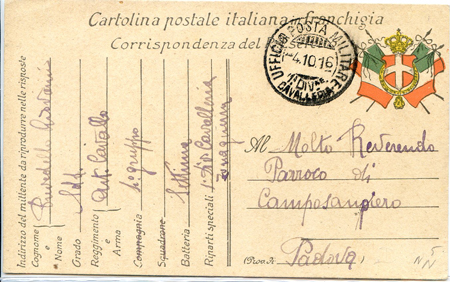 Cartolina postale italiana in franchigia
Corrispondenza del R. ESERCITO
UFFICIO POSTA MILITARE
-4.10.16
1 DIVne
CAVALLERIA
Al Molto Reverendo
Parroco di
Camposampiero
(Prov. di) Padova
Indirizzo del mittente da riprodurre nelle risposte
Cognome
e
Nome
Grado Sold.
Reggimento Art. Cavallo
e
Arma
Compagnia 4° gruppo
Squadrone
Batteria Settima
Riparti speciali 1ª Div Cavalleria
Zona guerra